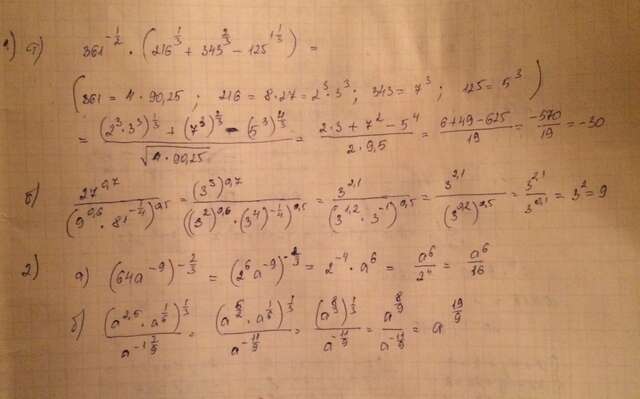 1) а) 361^{-1/2} · (216^{1/3} + 343^{2/3} − 125^{1 1/3}) =
(361 = 4 · 90,25 ; 216 = 8·27 = 2^3·3^3 ; 343 = 7^3 ; 125 = 5^3)
= ((2^3·3^3)^{1/3} + (7^3)^{2/3} − (5^3)^{4/3}) / √(4·90,25) = (2·3 + 7^2 − 5^4) / (2·9,5) = (6+49−625) / 19 = −570/19 = −30
б) 27^{0,7} / (9^{0,6} · 81^{-1/4})^{0,5} = (3^3)^{0,7} / ((3^2)^{0,6} · (3^4)^{-1/4})^{0,5} = 3^{2,1} / (3^{1,2} · 3^{-1})^{0,5} = 3^{2,1} / (3^{0,2})^{0,5} = 3^{2,1} / 3^{0,1} = 3^2 = 9
2) а) (64a^{-9})^{-2/3} = (2^6 a^{-9})^{-2/3} = 2^{-4} · a^6 = a^6 / 2^4 = a^6 / 16
б) (a^{2,5} · a^{1/6})^{1/3} / a^{-1 2/9} = (a^{5/2} · a^{1/6})^{1/3} / a^{-11/9} = (a^{8/3})^{1/3} / a^{-11/9} = a^{8/9} / a^{-11/9} = a^{19/9}